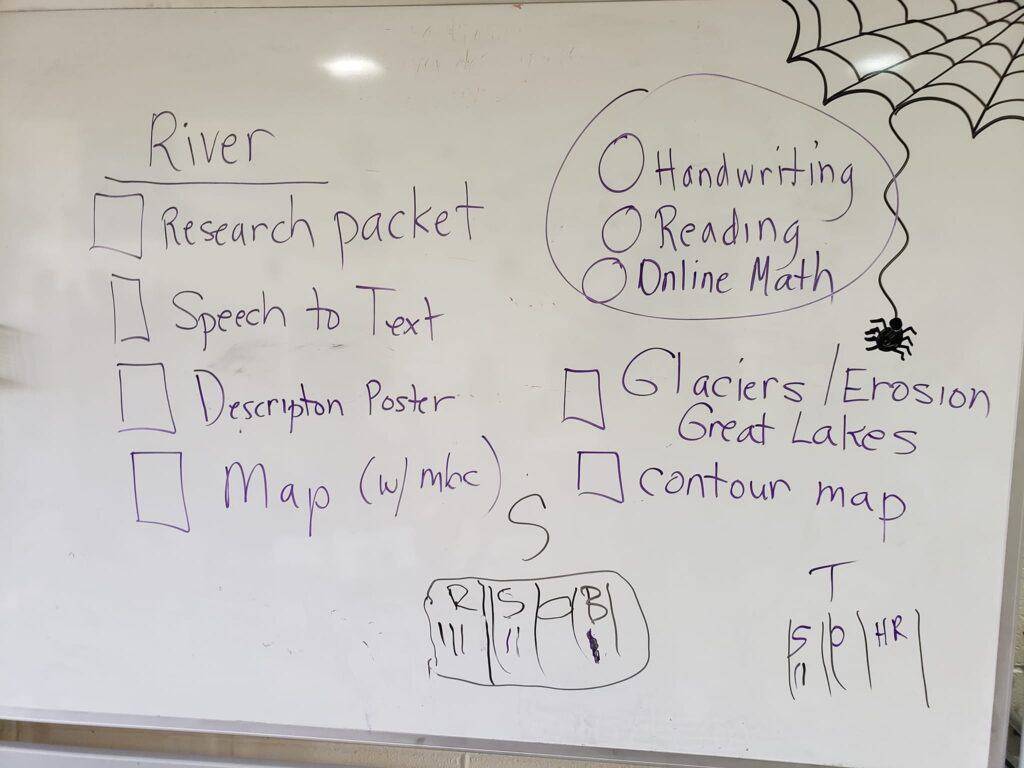 River
Research packet
Speech to Text
Descripton Poster
Map (w/ mbc)
Handwriting
Reading
Online Math
Glaciers / Erosion
Great Lakes
contour map
S
R S O B
T
S O HR